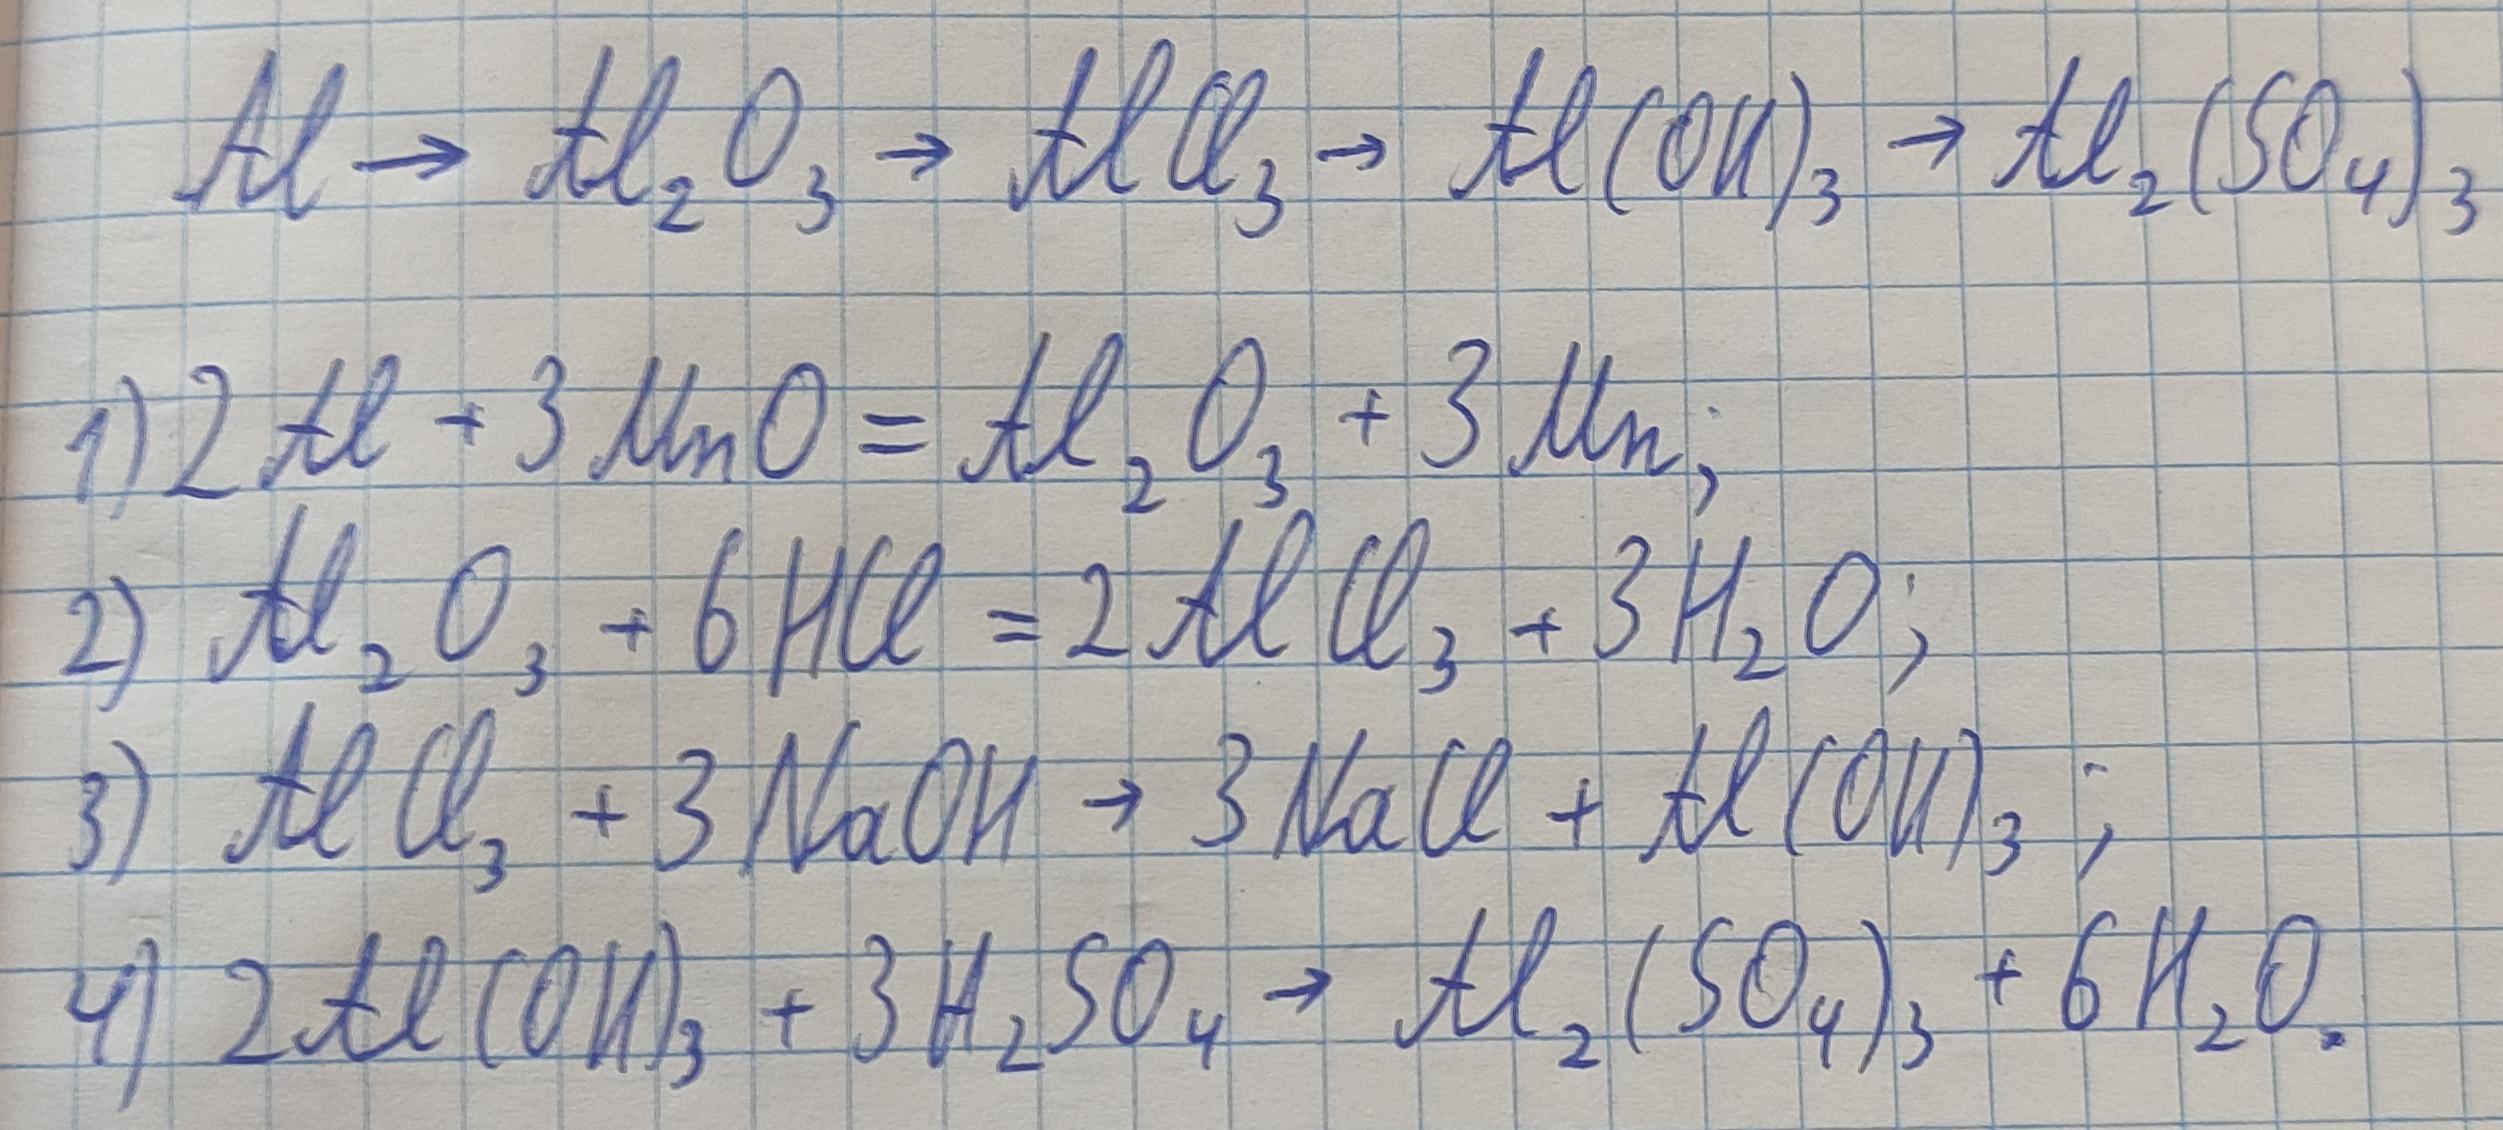 Al → Al₂O₃ → AlCl₃ → Al(OH)₃ → Al₂(SO₄)₃
1) 2Al + 3MnO = Al₂O₃ + 3Mn;
2) Al₂O₃ + 6HCl = 2AlCl₃ + 3H₂O;
3) AlCl₃ + 3NaOH → 3NaCl + Al(OH)₃;
4) 2Al(OH)₃ + 3H₂SO₄ → Al₂(SO₄)₃ + 6H₂O.